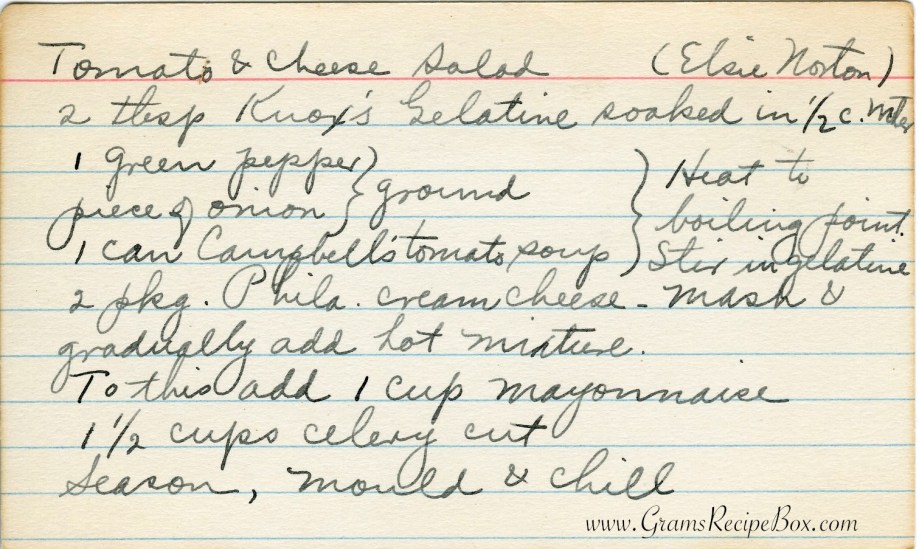 Tomato & Cheese Salad (Elsie Norton)
2 tbsp Knox's Gelatine soaked in 1/2 c. water
1 green pepper } ground } Heat to
piece of onion boiling point.
1 can Campbell's tomato soup Stir in gelatine
2 pkg. Phila. cream cheese - mash &
gradually add hot mixture.
To this add 1 cup mayonnaise
1 1/2 cups celery cut
Season, mould & chill
www.GramsRecipeBox.com